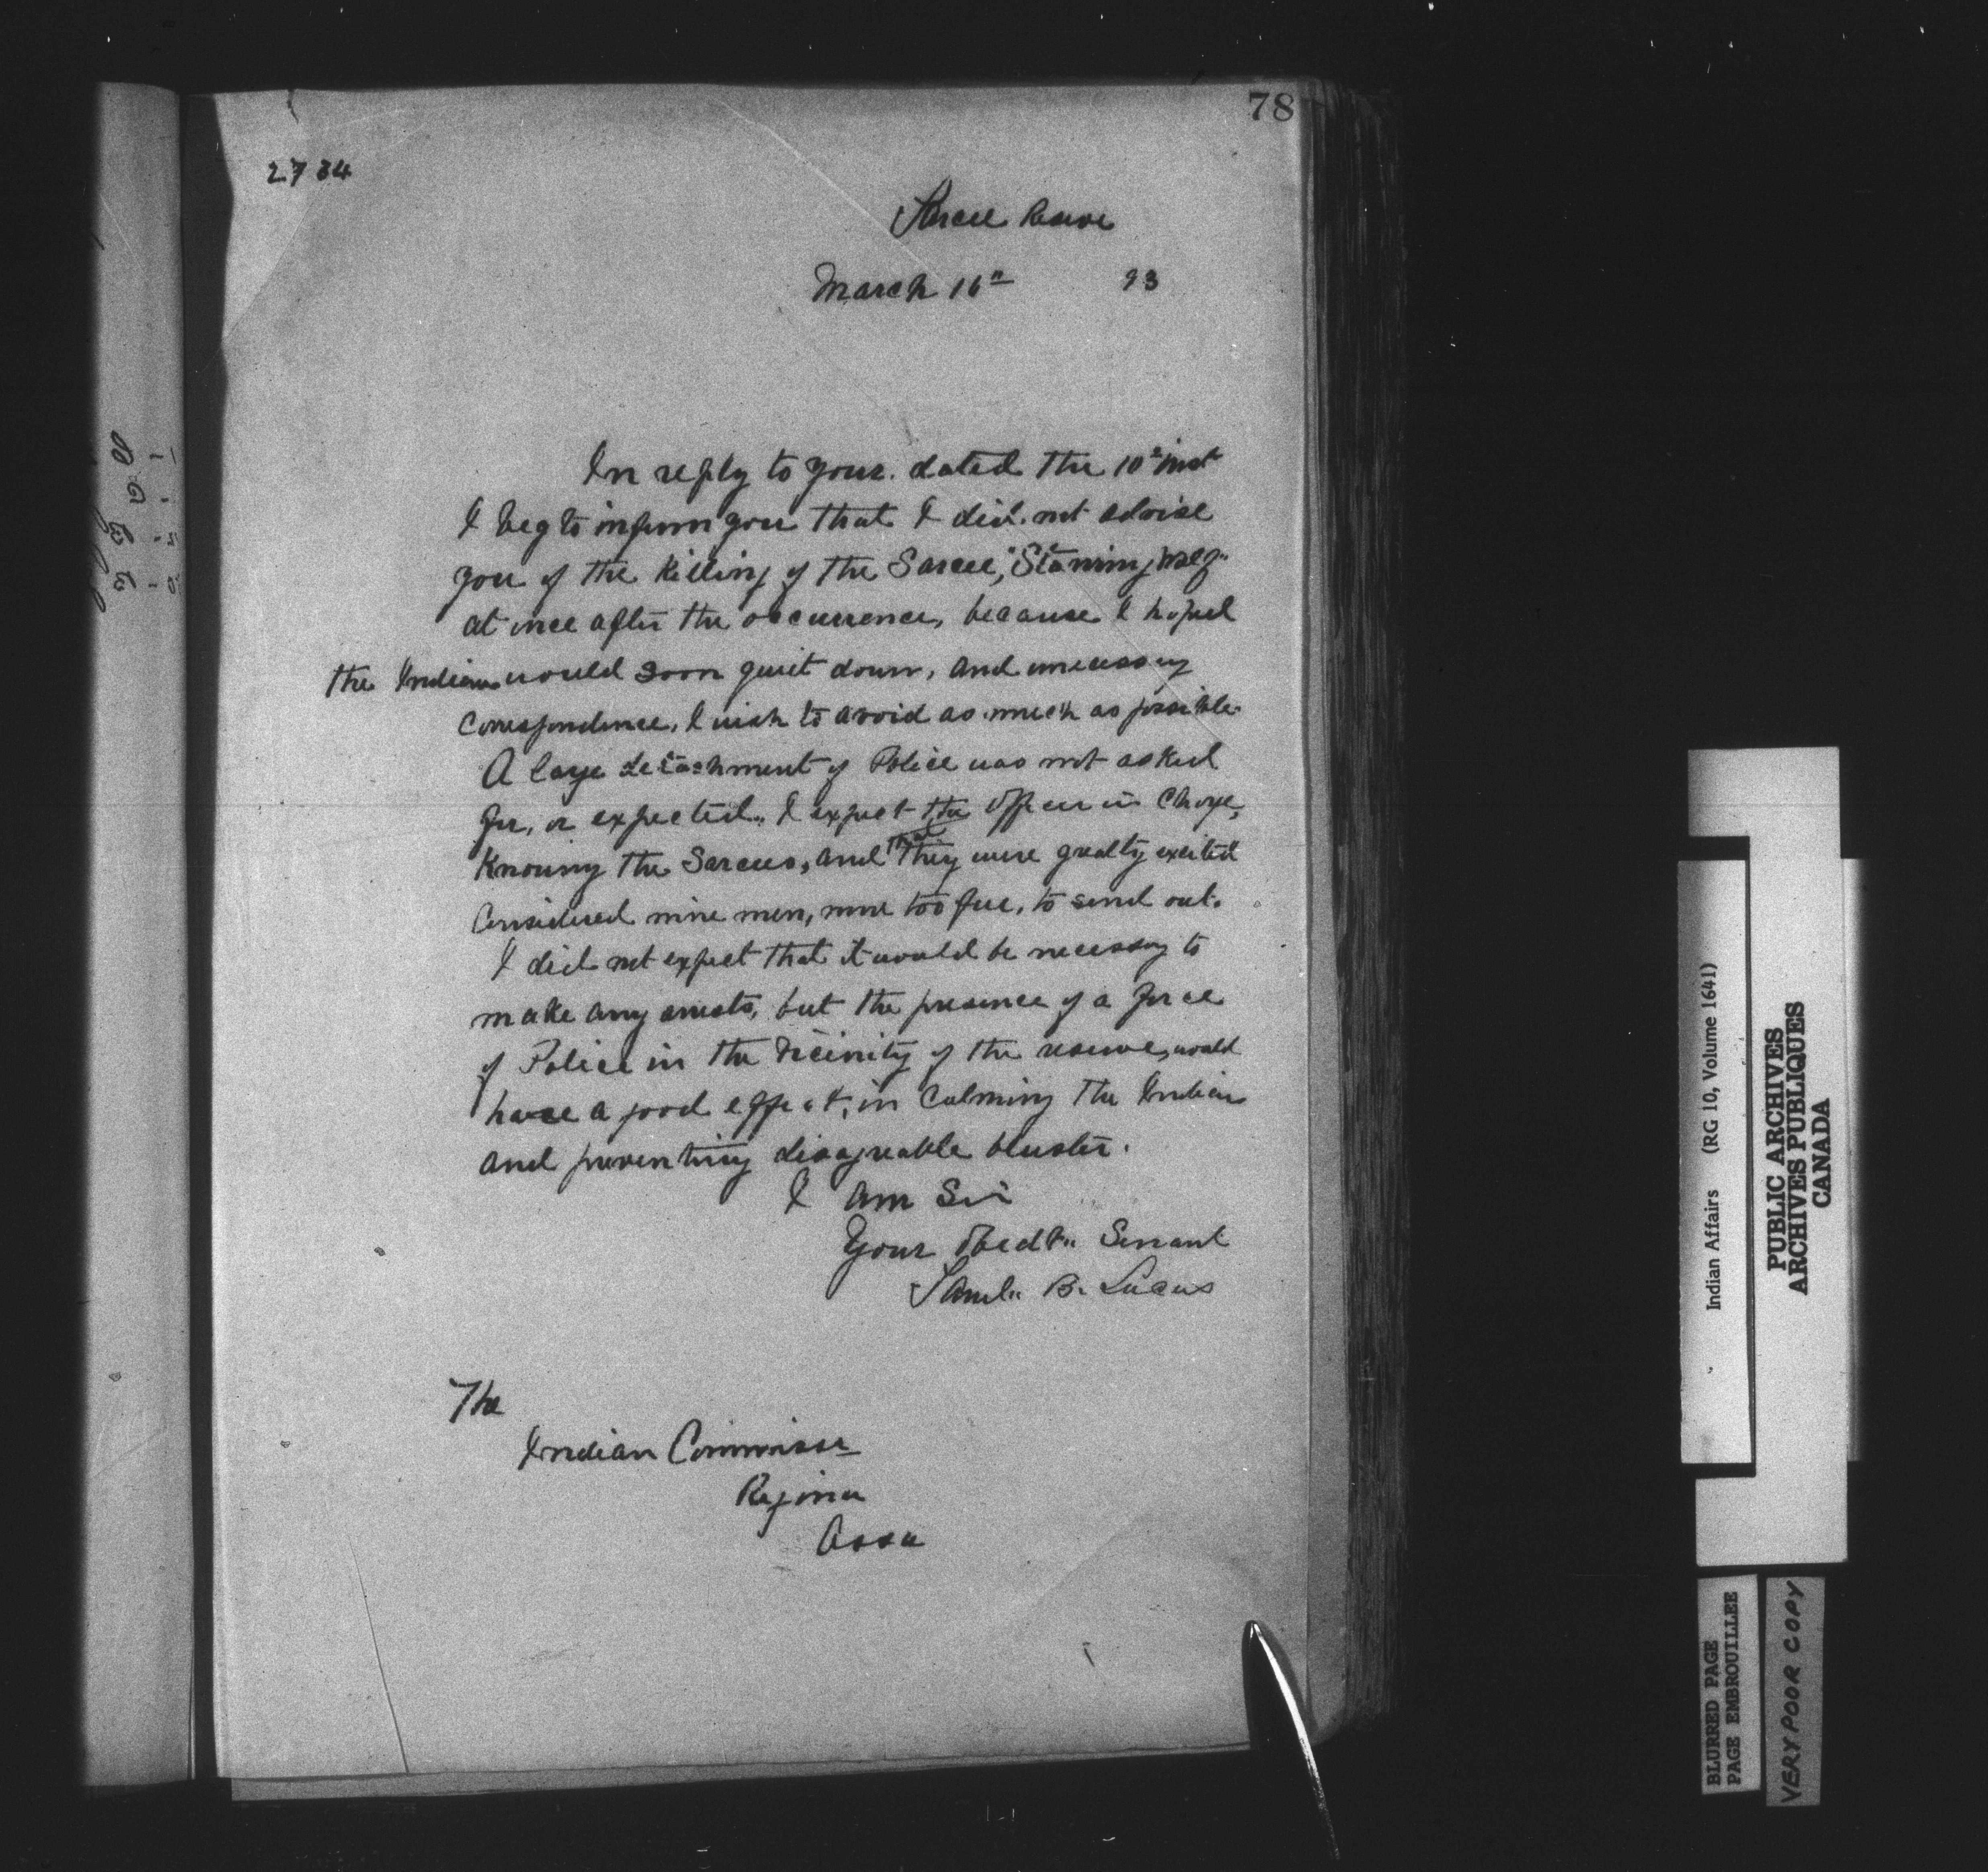 78
2734
Sarcee Reserve
March 16th 93
In reply to yours dated the 10th inst
I beg to inform you that I did not advise
you of the Killing of the Sarcee,
at once after the occurrence, because I hoped
the Indians would soon quiet down, and unecessary
correspondence, I wish to avoid as much as possible.
A large detachment of Police was not asked
for, or expected. I expect the Officer in Charge,
Knowing the Sarcees, and that they were greatly excited
Considered nine men, none too few, to send out.
I did not expect that it would be necessary to
make any arrests, but the presence of a force
of Police in the Vicinity of the reserve, would
have a good effect, in Calming the Indians
and preventing disagreable bluster.
I am Sir
Your Obedt. Servant
Saml. B. Lucas
The
Indian Commissr
Regina
Assa
Indian Affairs (RG 10, Volume 1641)
PUBLIC ARCHIVES
ARCHIVES PUBLIQUES
CANADA
BLURRED PAGE
PAGE EMBROUILLEE
VERY POOR COPY